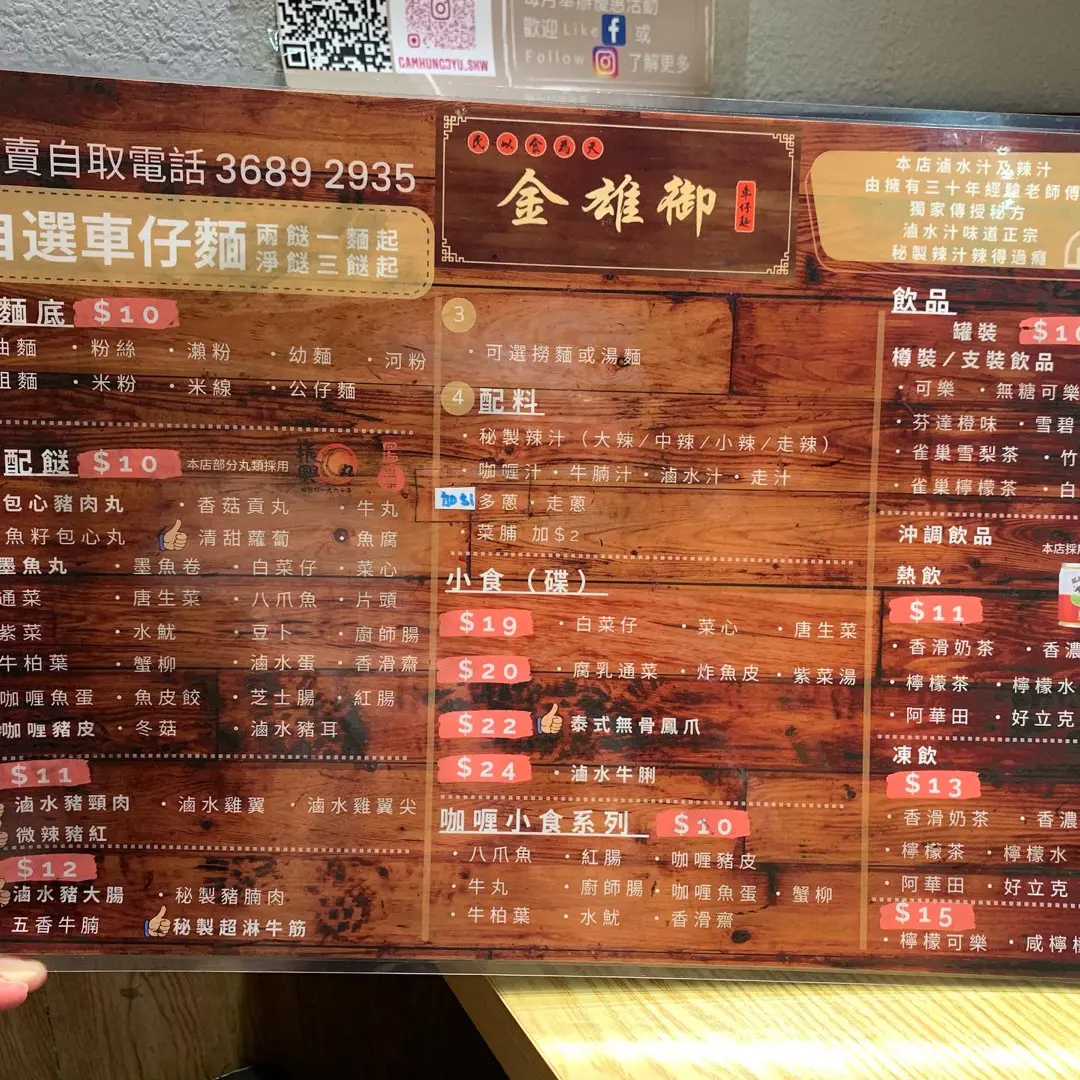 GAMHUNGJYU.SHW
每月舉辦優惠活動
歡迎 Like 或
Follow 了解更多
賣自取電話 3689 2935
自選車仔麵
兩餸一麵起
淨餸三餸起
民以食為天
金雄御
車仔麵
本店滷水汁及辣汁
由擁有三十年經驗老師傅
獨家傳授秘方
滷水汁味道正宗
秘製辣汁辣得過癮
麵底 $10
油麵 ・粉絲 ・瀨粉 ・幼麵 ・河粉
粗麵 ・米粉 ・米線 ・公仔麵
配餸 $10 本店部分丸類採用
包心豬肉丸 ・香菇貢丸 ・牛丸
魚籽包心丸 清甜蘿蔔 ・魚腐
墨魚丸 ・墨魚卷 ・白菜仔 ・菜心
通菜 ・唐生菜 ・八爪魚 ・片頭
紫菜 ・水魷 ・豆卜 ・廚師腸
牛柏葉 ・蟹柳 ・滷水蛋 ・香滑齋
咖喱魚蛋 ・魚皮餃 ・芝士腸 ・紅腸
咖喱豬皮 ・冬菇 ・滷水豬耳
$11
滷水豬頸肉 ・滷水雞翼 ・滷水雞翼尖
微辣豬紅
$12
滷水豬大腸 ・秘製豬腩肉
五香牛腩 秘製超淋牛筋
3
・可選撈麵或湯麵
4 配料
・秘製辣汁（大辣/中辣/小辣/走辣）
・咖喱汁・牛腩汁・滷水汁・走汁
多蔥・走蔥
・菜脯 加$2
小食（碟）
$19 ・白菜仔 ・菜心 ・唐生菜
$20 ・腐乳通菜 ・炸魚皮 ・紫菜湯
$22 泰式無骨鳳爪
$24 ・滷水牛脷
咖喱小食系列 $10
・八爪魚 ・紅腸 ・咖喱豬皮
・牛丸 ・廚師腸 ・咖喱魚蛋 ・蟹柳
・牛柏葉 ・水魷 ・香滑齋
飲品
罐裝 $10
樽裝/支裝飲品
・可樂 ・無糖可樂
・芬達橙味 ・雪碧
・雀巢雪梨茶 ・竹
・雀巢檸檬茶 ・白
沖調飲品 本店採用
熱飲
$11
・香滑奶茶 ・香濃
・檸檬茶 ・檸檬水
・阿華田 ・好立克
凍飲
$13
・香滑奶茶 ・香濃
・檸檬茶 ・檸檬水
・阿華田 ・好立克
$15
・檸檬可樂 ・咸檸檬